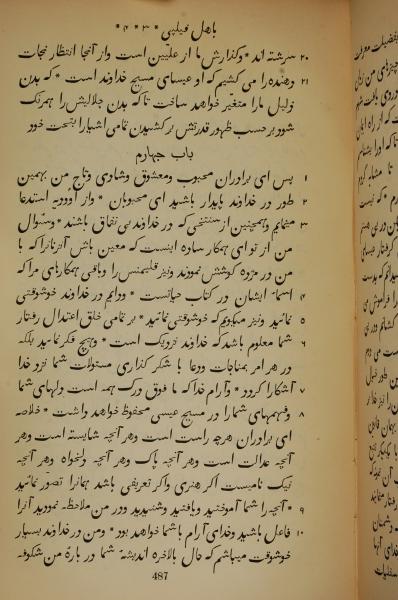 باهل فیلپی * ۳ * ۴ *
۲۰ سرشته اند * و گذارش ما از علیین است و از آنجا انتظار نجات
۲۱ دهنده را می کشیم که او عیسای مسیح خداوند است * که بدن
ذلیل ما را متغیر خواهد ساخت تا که بدن جلالیش را همرنگ
شود بر حسب ظهور قدرتش بر کشیدن تمامی اشیا را بتحت خود
باب چهارم
۱ پس ای برادران محبوب و معشوق و شادی و تاج من بهمین
۲ طور در خداوند پایدار باشید ای محبوبان * و از اودیه استدعا
۳ مینمایم و همچنین از سنتخی که در خداوند بی نفاق باشند * و سئوال
من از تو ای همکار ساده اینست که معین باش آنزنانرا که با
من در مژده کوشش نمودند و نیز قلیمنس را و باقی همکارهای مرا که
۴ اسماء ایشان در کتاب حیاتست * و دایم در خداوند خوشوقتی
۵ نمائید و نیز میگویم که خوشوقتی نمائید * بر تمامی خلق اعتدال رفتار
۶ شما معلوم باشد که خداوند نزدیک است * و هیچ فکر نمائید بلکه
در هر امر بمناجات و دعا با شکر گذاری مسئولات شما نزد خدا
۷ آشکارا گردد * و آرام خدا که ما فوق درک همه است دلهای شما
۸ و فهمهای شما را در مسیح عیسی محفوظ خواهد داشت * خلاصه
ای برادران هر چه راست است و هر آنچه شایسته است و هر
آنچه عدالت است و هر آنچه پاک و هر آنچه دلخواه و هر آنچه
نیک نامیست اگر هنری و اگر تعریفی باشد همانرا تصور نمائید
۹ * آنچه را شما آموختید و یافتید و شنیدید و در من ملاحظه نمودید آنرا
۱۰ فاعل باشید و خدای آرام با شما خواهد بود * و من در خداوند بسیار
خوشوقت میباشم که حال بالاخره اندیشهٔ شما در بارهٔ من شکوفه
487